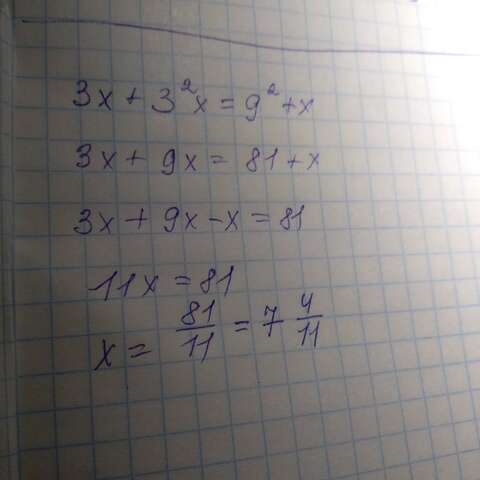 3x + 3²x = 9² + x
3x + 9x = 81 + x
3x + 9x - x = 81
11x = 81
x = 81/11 = 7 4/11